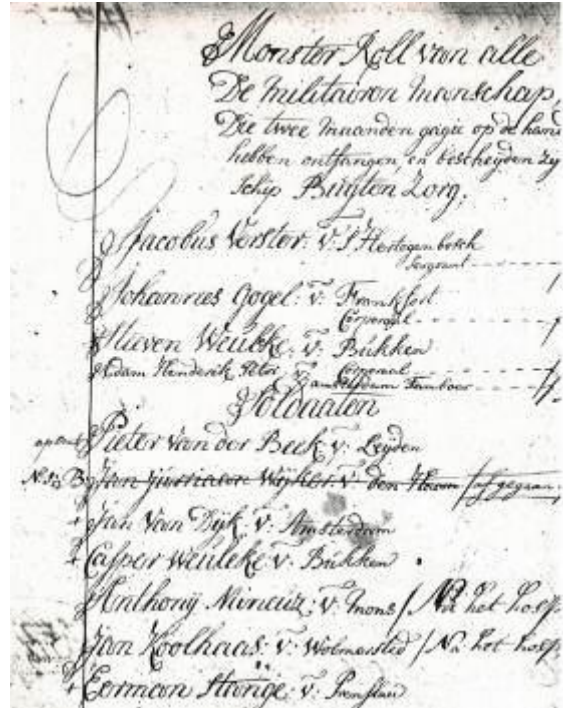 Monster Roll van alle
De militairen manschap,
Die twee maanden gagie op de hand
hebben ontfangen, en bescheyden zy
Schip Buyten Zorg,
Jacobus Verster: v: S'Hertogenbosch
Sergeant
Johannes Gogel: v: Frankfort
Corporaal
Stieven Weulke: v: Bükken
Corporaal
Adam Henderik Peter v: Amsteldam Tamboer
Soldaaten
Pieter van der Beek v: Leyden
Jan Jurriaan Wijker v: den
Jan van Dijk v: Amsterdam
Casper Weuleke v: Bükken
Anthonij Mineur v: Mons / Na het hosp.
Jan Koolhaas: v: / Na het hosp.
Eerman Stange: v: